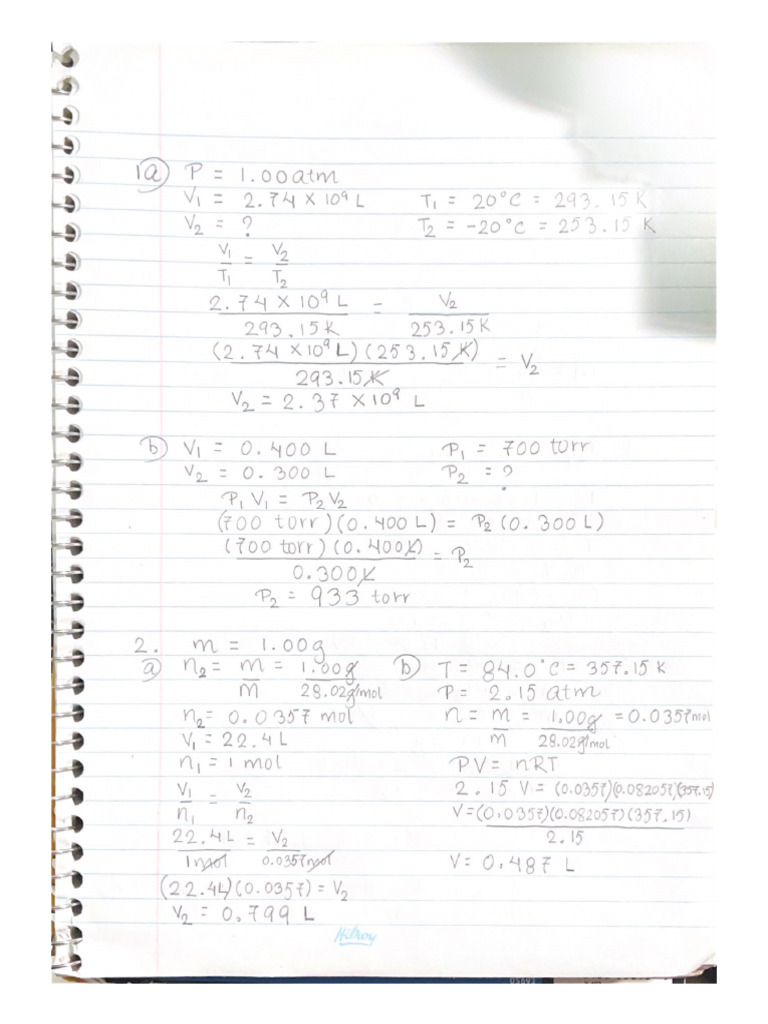 1a) P = 1.00atm
V₁ = 2.74 × 10⁹ L T₁ = 20°C = 293.15 K
V₂ = ? T₂ = -20°C = 253.15 K
V₁/T₁ = V₂/T₂
2.74 × 10⁹ L / 293.15K = V₂ / 253.15K
(2.74 × 10⁹ L)(253.15K) / 293.15K = V₂
V₂ = 2.37 × 10⁹ L
b) V₁ = 0.400 L P₁ = 700 torr
V₂ = 0.300 L P₂ = ?
P₁V₁ = P₂V₂
(700 torr)(0.400 L) = P₂ (0.300 L)
(700 torr)(0.400L) / 0.300L = P₂
P₂ = 933 torr
2. m = 1.00g
a) n₂ = m/m = 1.00g / 28.02g/mol
n₂ = 0.0357 mol
V₁ = 22.4 L
n₁ = 1 mol
V₁/n₁ = V₂/n₂
22.4L / 1mol = V₂ / 0.0357mol
(22.4L)(0.0357) = V₂
V₂ = 0.799 L
b) T = 84.0°C = 357.15 K
P = 2.15 atm
n = m/m = 1.00g / 28.02g/mol = 0.0357mol
PV = nRT
2.15 V = (0.0357)(0.082057)(357.15)
V = (0.0357)(0.082057)(357.15) / 2.15
V = 0.487 L
Hilroy